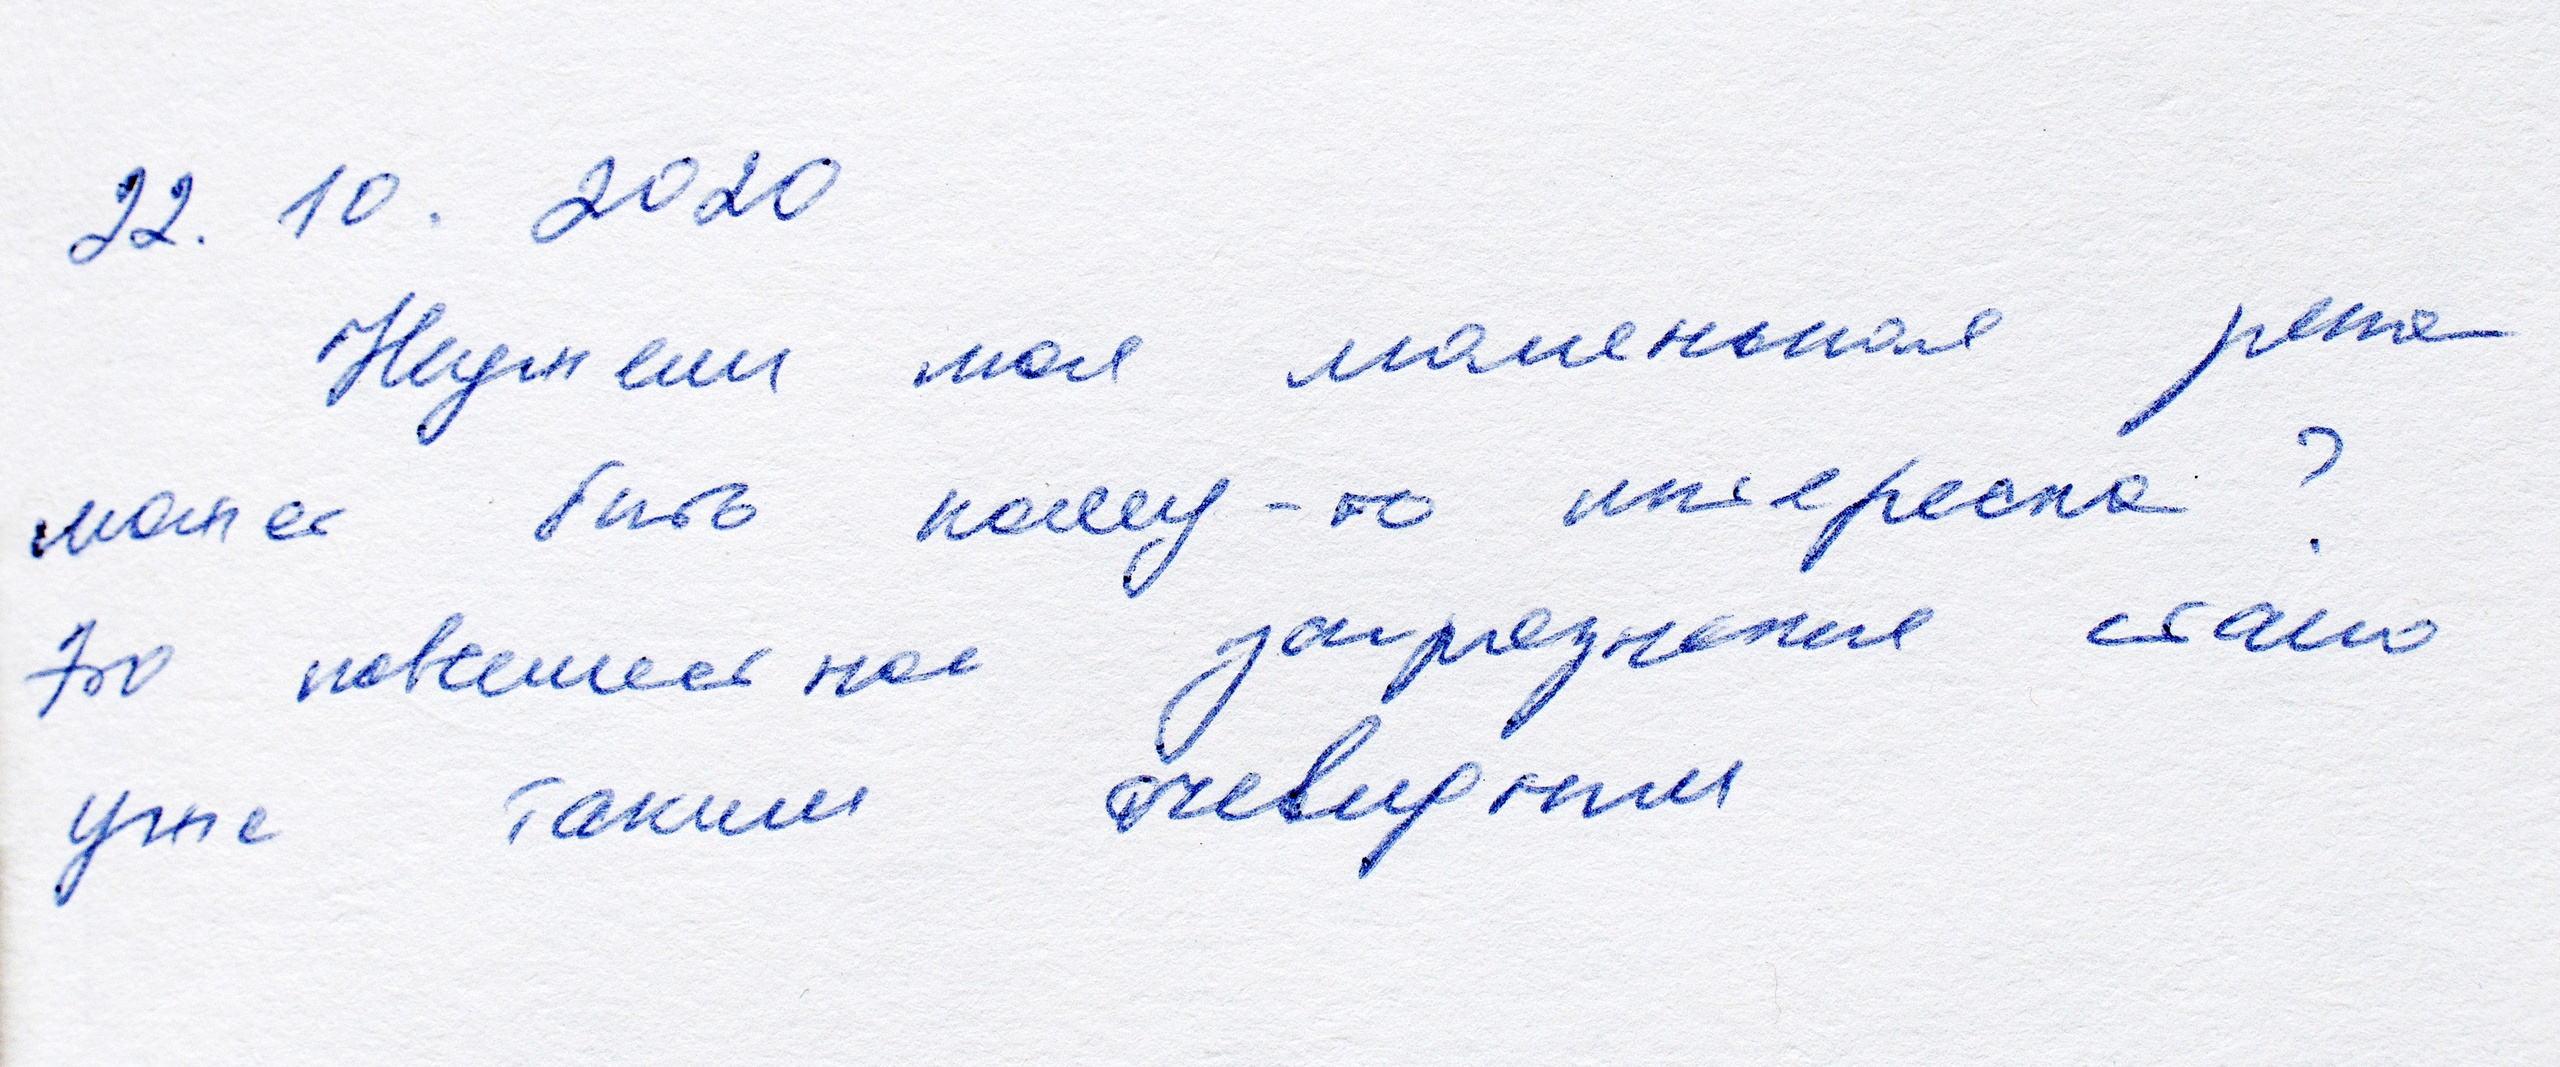 22. 10. 2020
Неужели моя маленькая река
может быть кому-то интересна?
Это повсеместное загрязнение стало
уже таким очевидным